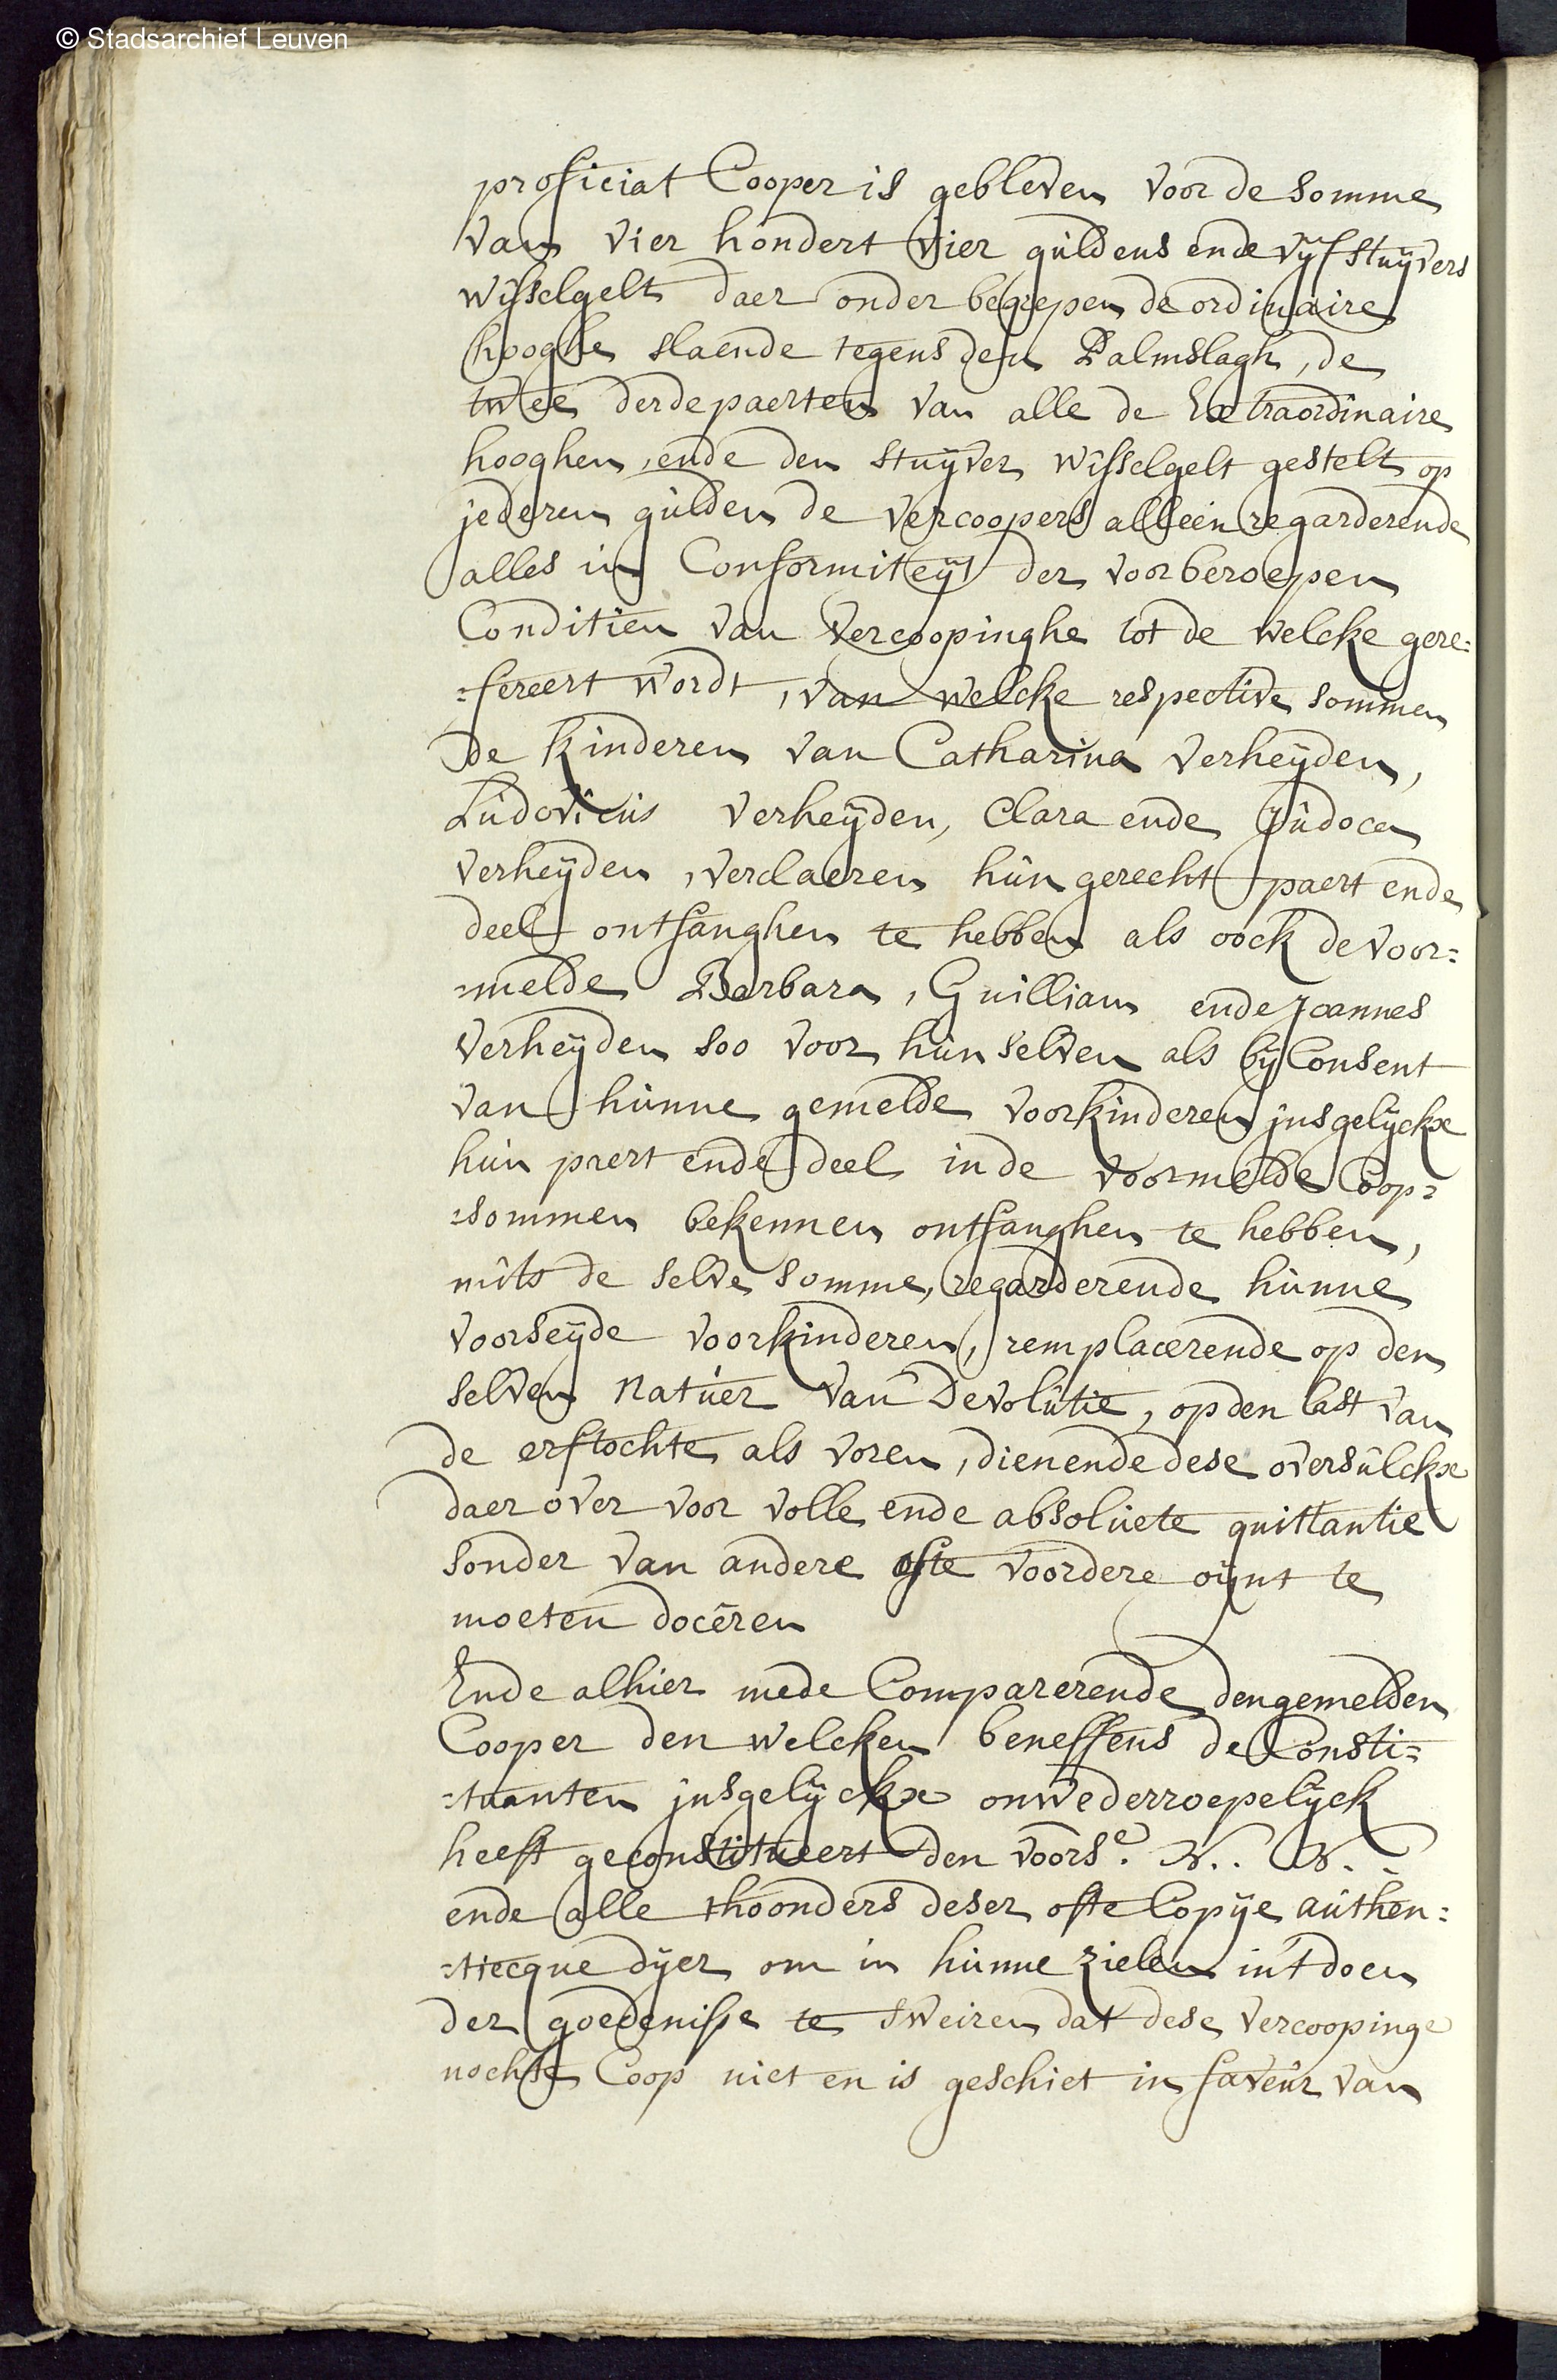 © Stadsarchief Leuven
proficiat Cooper is gebleven voor de somme
van vier hondert vier guldens ende vijf stuijvers
wisselgelt daer onder begrepen de ordinaire
hooghe slaende tegens den Palmslagh, de
twee derdepaerten van alle de Extraordinaire
hooghen, ende den stuijver wisselgelt gestelt op
jederen gulden de vercoopers alleen regarderende
alles in Conformiteijt der voorberoepen
Conditien van vercoopinghe tot de welcke gere=
=fereert wordt, van welcke respective sommen
de kinderen van Catharina verheijden,
Ludovicus verheijden, Clara ende Judoca
verheijden, verclaeren hun gerecht paert ende
deel ontfanghen te hebben als oock de voor=
=melde Barbara, Guilliam ende Joannes
verheijden soo voor hun selven als bij Consent
van hunne gemelde voorkinderen jnsgelijckx
hun paert ende deel in de voormelde Coop=
=sommen bekennen ontfanghen te hebben,
mits de selve somme, regarderende hunne
voorseijde voorkinderen, remplacerende op den
selven natuer van Devolutie, op den last van
de erftochte als voren, dienende dese oversulckx
daer over voor volle ende absoluete quittantie
sonder van andere ofte voordere oijnt te
moeten doceren
Ende alhier mede Comparerende den gemelden
Cooper den welcken beneffens de Consti=
=tuanten jnsgelijckx onwederroepelijck
heeft geconstitueert den voorse. N.. N..
ende alle thoonders deser ofte Copije authen=
=tiecque dijer om in hunne zielen in't doen
der goedenisse te sweiren dat dese vercoopinge
nochte Coop niet en is geschiet in faveur van